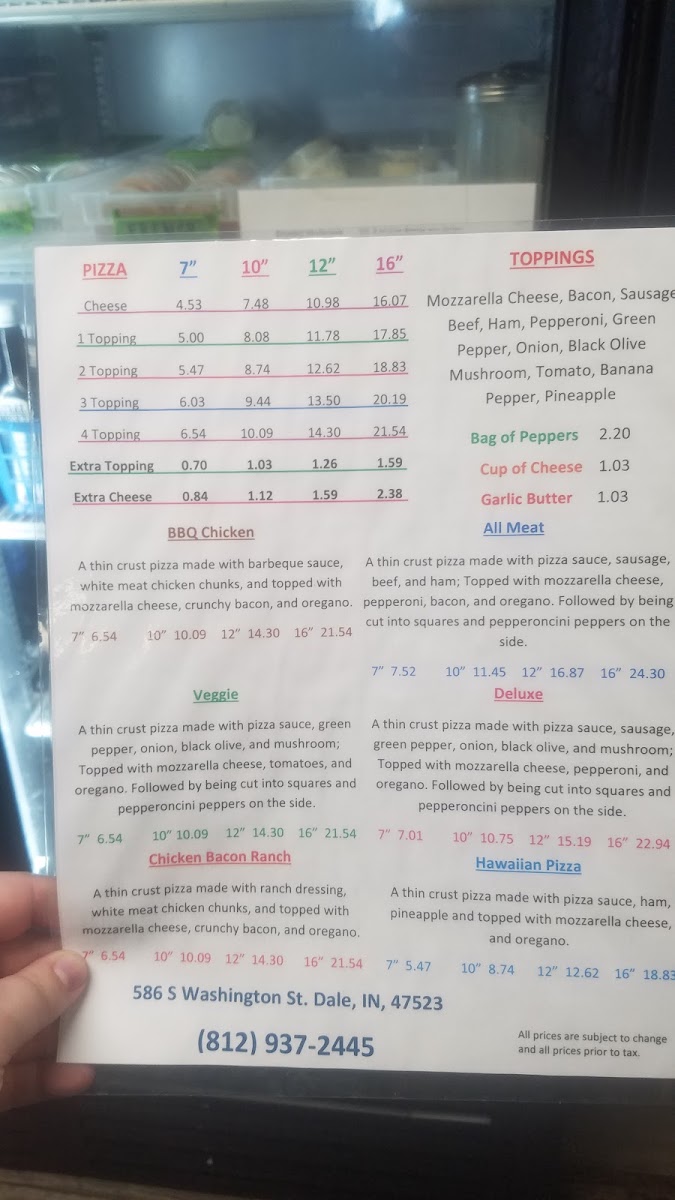 PIZZA 7" 10" 12" 16"
Cheese 4.53 7.48 10.98 16.07
1 Topping 5.00 8.08 11.78 17.85
2 Topping 5.47 8.74 12.62 18.83
3 Topping 6.03 9.44 13.50 20.19
4 Topping 6.54 10.09 14.30 21.54
Extra Topping 0.70 1.03 1.26 1.59
Extra Cheese 0.84 1.12 1.59 2.38
TOPPINGS
Mozzarella Cheese, Bacon, Sausage
Beef, Ham, Pepperoni, Green
Pepper, Onion, Black Olive
Mushroom, Tomato, Banana
Pepper, Pineapple
Bag of Peppers 2.20
Cup of Cheese 1.03
Garlic Butter 1.03
BBQ Chicken
A thin crust pizza made with barbeque sauce,
white meat chicken chunks, and topped with
mozzarella cheese, crunchy bacon, and oregano.
7" 6.54 10" 10.09 12" 14.30 16" 21.54
All Meat
A thin crust pizza made with pizza sauce, sausage,
beef, and ham; Topped with mozzarella cheese,
pepperoni, bacon, and oregano. Followed by being
cut into squares and pepperoncini peppers on the
side.
7" 7.52 10" 11.45 12" 16.87 16" 24.30
Veggie
A thin crust pizza made with pizza sauce, green
pepper, onion, black olive, and mushroom;
Topped with mozzarella cheese, tomatoes, and
oregano. Followed by being cut into squares and
pepperoncini peppers on the side.
7" 6.54 10" 10.09 12" 14.30 16" 21.54
Deluxe
A thin crust pizza made with pizza sauce, sausage,
green pepper, onion, black olive, and mushroom;
Topped with mozzarella cheese, pepperoni, and
oregano. Followed by being cut into squares and
pepperoncini peppers on the side.
7" 7.01 10" 10.75 12" 15.19 16" 22.94
Chicken Bacon Ranch
A thin crust pizza made with ranch dressing,
white meat chicken chunks, and topped with
mozzarella cheese, crunchy bacon, and oregano.
7" 6.54 10" 10.09 12" 14.30 16" 21.54
Hawaiian Pizza
A thin crust pizza made with pizza sauce, ham,
pineapple and topped with mozzarella cheese,
and oregano.
7" 5.47 10" 8.74 12" 12.62 16" 18.83
586 S Washington St. Dale, IN, 47523
(812) 937-2445
All prices are subject to change
and all prices prior to tax.